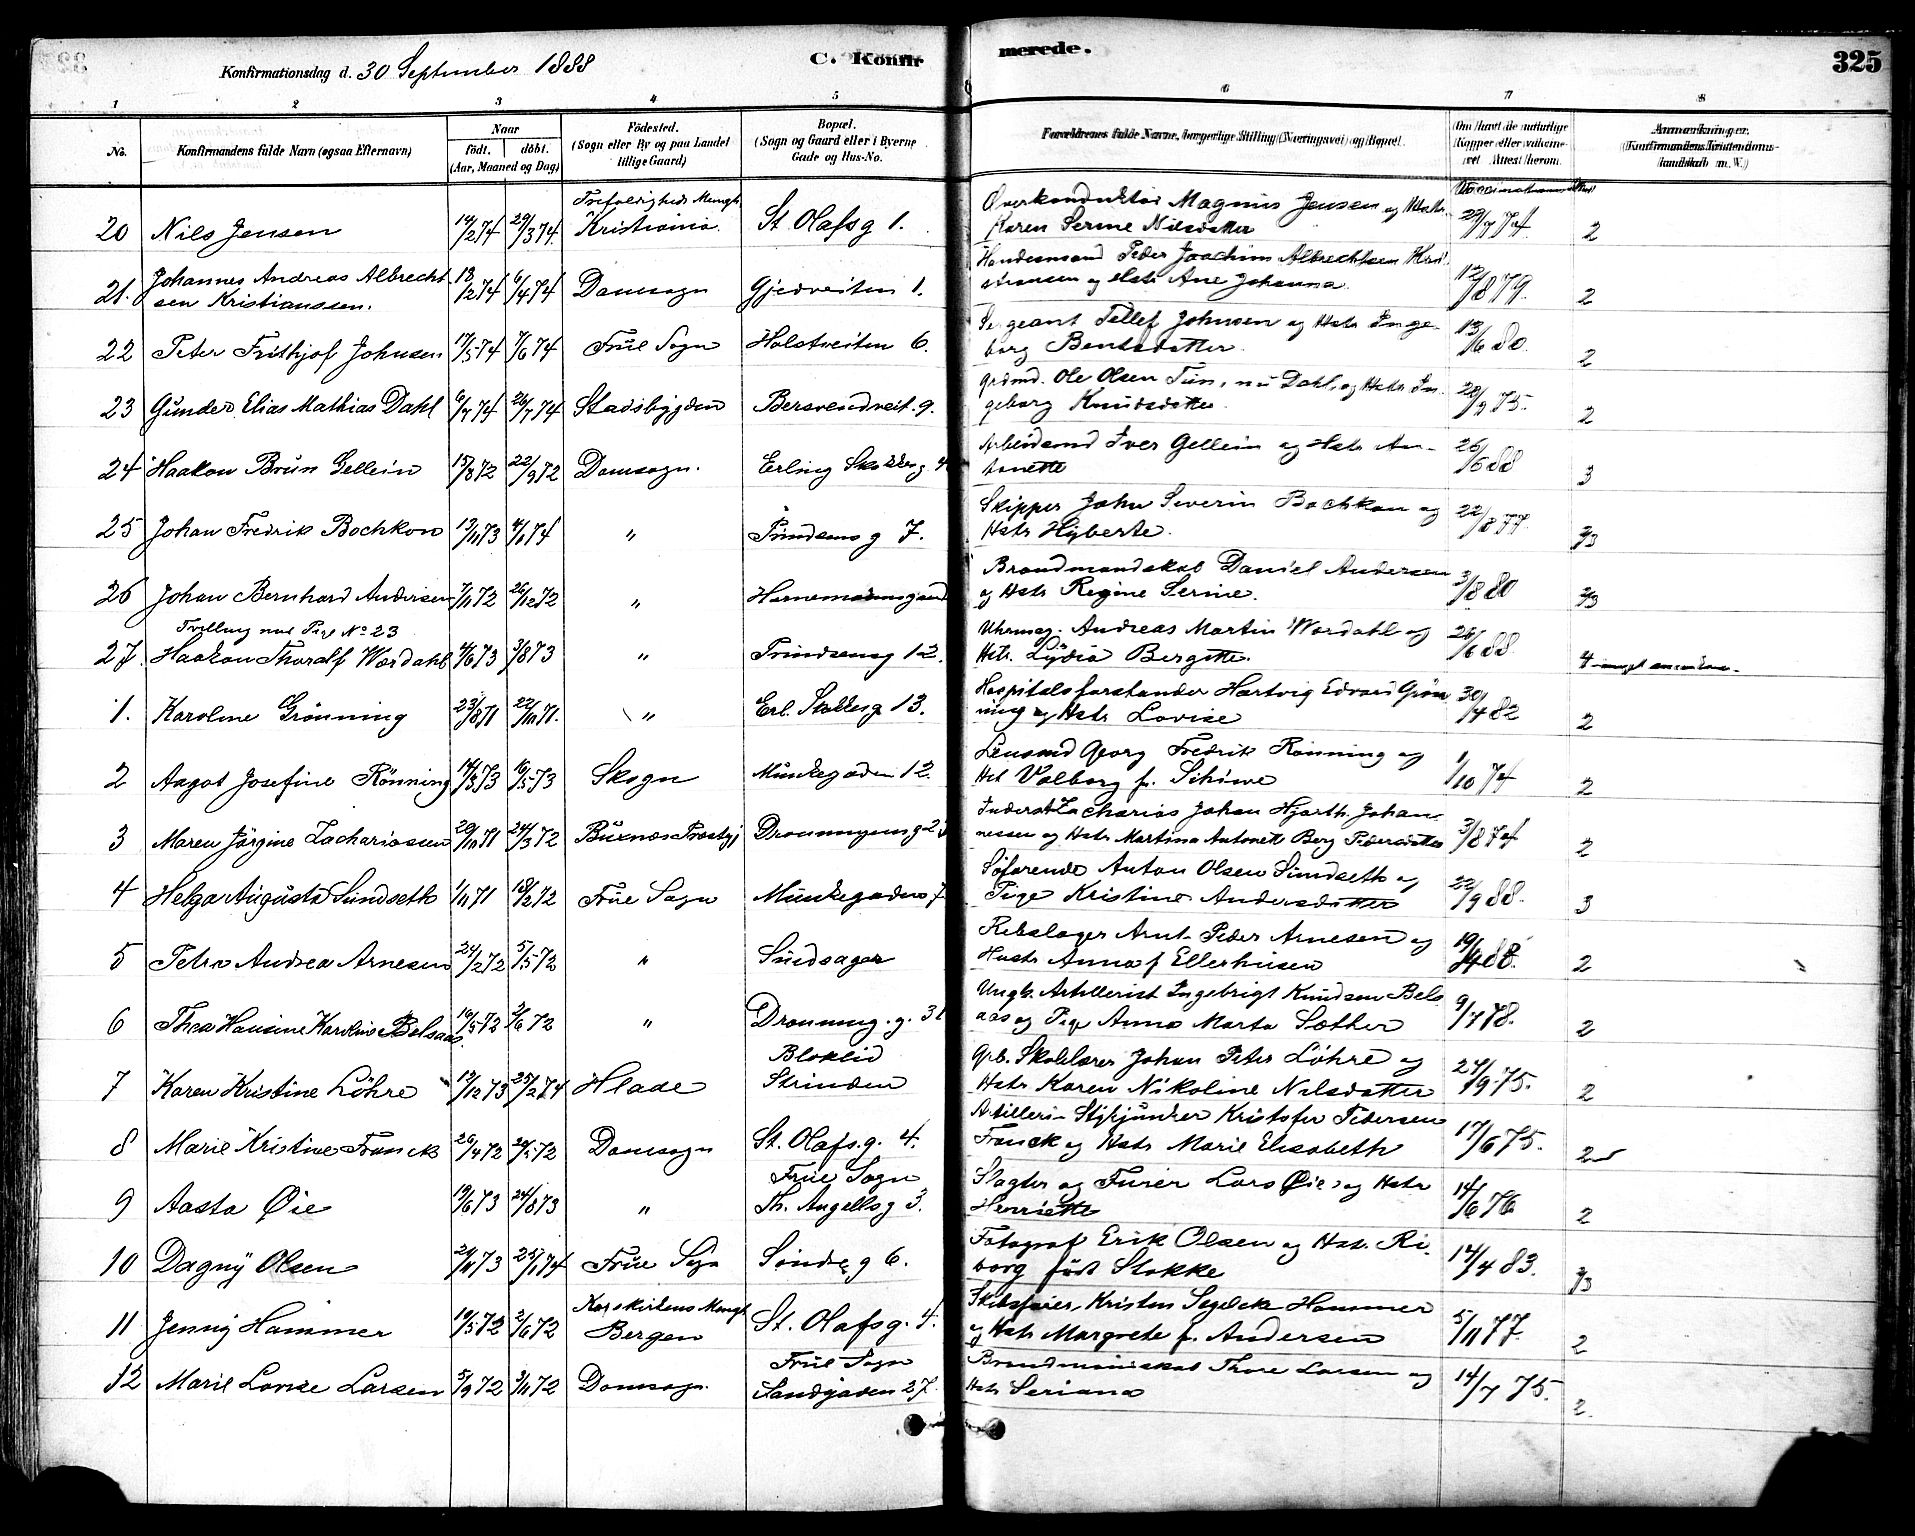 Konfirmationsdag d. 30 September 1888
C. Konfirmerede.
325
1 2 3 4 5 6 7 8
No.
Konfirmandens fulde Navn (ogsaa Efternavn)
Naar
født. døbt.
(Aar, Maaned og Dag)
Fødested.
(Sogn eller By og paa Landet
tillige Gaard)
Bopæl.
(Sogn og Gaard eller i Byerne
Gade og Hus-No.
Forældrenes fulde Navne, borgerlige Stilling (Næringsvei) og Bopæl.
Om Havt de naturlige
Kopper eller vaccine-
ret Attest herom.
Anmærkninger.
(Konfirmandens Kristendoms-
kundskab m. V.)
20 Nils Jensen 14/2 74 29/3 74 Trefoldigheds Mengh. Kristiania. St Olafsg 1. Overkonduktør Magnus Jensen og Hstr.
Karen Serine Nilsdatter 29/7 74 2
21. Johannes Andreas Albrecht
sen Kristianssen. 18/2 74 6/4 74 Domsogn Gjedveiten 1. Handesmand Peder Joachim Albrechtsen Kri
stiansen og Hstr Ane Johanna 12/8 79. 2
22 Peter Frithjof Johnsen 17/5 74 7/6 74 Frue Sogn Holstveiten 6. Sergeant Tellef Johnsen og Hstr Inge-
borg Bentsdatter. 13/6 80. 2
23 Gunder Elias Mathias Dahl 6/7 74 26/7 74 Stadsbygden Bersvendveit. 9. Grdmd. Ole Olsen Tun, nu Dahl, og Hstr In-
geborg Knudsdatter. 28/9 75. 2
24 Haakon Brun Gellein 15/8 72 22/9 72 Domsogn. Erling Skakkesg 4 Arbeidsmd Iver Gellein og Hstr An-
tonette 26/6 88 3
25 Johan Fredrik Bochkon 19/11 73 4/1 74 " Prindsensg 7. Skipper John Severin Bochkon og
Hstr Hyberte. 22/8 77. 2/3
26 Johan Bernhard Andersen 7/11 72 26/12 72 " Hornemannsgaard Brandmandskab Daniel Andersen
og Hstr Regine Serine. 3/8 80 2/3
Tvilling med Pige No 23
27. Haakon Thoralf Wordahl 4/6 73 3/8 73 " Prindsensg 12. Uhrmag. Andreas Martin Wordahl og
Hstr. Lydia Bergitte. 26/6 88 4
1. Karoline Grönning 23/8 71 22/10 71. " Erl. Skakkesg 13. Hospitalsforstander Hartvig Edvard Grön
ning og Hstr Lovise 30/4 82 2
2 Aagot Josefine Rönning 14/3 73 16/5 73 Skogn Munkegaden 12. Lensmd Georg Fredrik Rönning og
Hst Valborg f. Schive 1/10 74 2
3 Maren Jörgine Zachariassen 29/10 71 24/3 72 Buxnæs Præstgj Dronningensg 23 Inderst Zacharias Johan Hjorth Johan
nessen og Hstr Martina Antonette Berg Pedersdatter 3/8 74 2
4 Helga Augusta Sundseth 1/11 71 18/2 72 Frue Sogn Munkegaden 7 Söfarende Anton Olsen Sundseth og
Pige Kristine Andersdatter 22/9 88. 3
5 Petra Andrea Arnesen 24/2 72 5/5 72 " Sundsager Rebslager Arnt Peder Arnesen og
Hustr Anna f Ellerhusen 19/4 88. 2
6 Thea Hansine Karoline Belsaas. 16/5 72 2/6 72 " Dronning. g. 31 Ungk. Artillerist Ingebrigt Knudsen Bels
aas og Pige Anna Marta Sæther 9/7 78. 2
7 Karen Kristine Löhre 12/12 73 25/2 74 Hlade Bloklid
Strinden Grb. Skolelærer Johan Peter Löhre og
Hstr Karen Nikoline Nilsdatter 24/9 75. 2
8 Marie Kristine Franck 26/4 72 20/5 72 Domsogn St. Olafs. g. 4. Artilleri Stykjunker Kristofer Pedersen
Franck og Hstr Marie Elisabeth 17/6 75. 2
9 Aasta Øie 19/6 73 24/8 73 " Frue Sogn
Th. Angellsg 3. Slagter og Furer Lars Øie, og Hstr
Henriette 14/6 76 2
10 Dagny Olsen 24/11 73 25/1 74 Frue Sogn Söndreg 6. Fotograf Erik Olsen og Hstr. Ri-
borg född Stokke 12/4 83. 2/3
11 Jenny Hammer 19/5 72 2/6 72 Korskirkens Mengh
Bergen St. Olafsg. 4. Skibsfører Kristen Segelcke Hammer
og Hstr Margrete f. Andersen 5/11 77. 2
12 Marie Lovise Larsen 5/9 72 3/11 72 Domsogn Frue Sogn
Sandgaden 27 Brandmandskab Thore Larsen og
Hstr Seriana 14/7 75. 2.